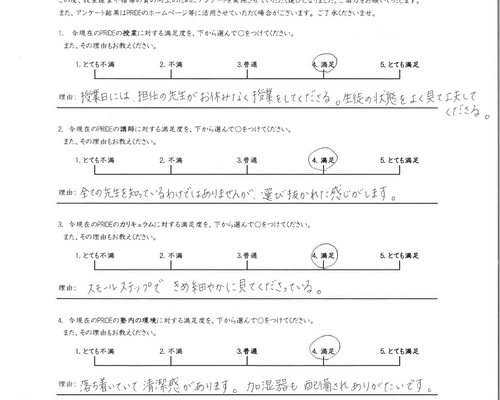 また、アンケート結果はPRIDEのホームページ等に活用させていただく場合がございます。ご了承くださいませ。
1. 今現在のPRIDEの授業に対する満足度を、下から選んで○をつけてください。
また、その理由もお教えください。
1.とても不満 2. 不満 3.普通 4. 満足 5.とても満足
理由: 授業日には、担任の先生がお休みなく授業をしてくださる。生徒の状態をよく見て工夫して
くださる。
2. 今現在のPRIDEの講師に対する満足度を、下から選んで○をつけてください。
また、その理由もお教えください。
1.とても不満 2. 不満 3.普通 4. 満足 5.とても満足
理由: 全ての先生を知っているわけではありませんが、選び抜かれた感じがします。
3. 今現在のPRIDEのカリキュラムに対する満足度を、下から選んで○をつけてください。
また、その理由もお教えください。
1.とても不満 2. 不満 3.普通 4. 満足 5.とても満足
理由: スモールステップで きめ細やかに見てくださっている。
4. 今現在のPRIDEの塾内の環境に対する満足度を、下から選んで○をつけてください。
また、その理由もお教えください。
1.とても不満 2. 不満 3.普通 4. 満足 5.とても満足
理由: 落ち着いていて清潔感があります。加湿器も配備されありがたいです。